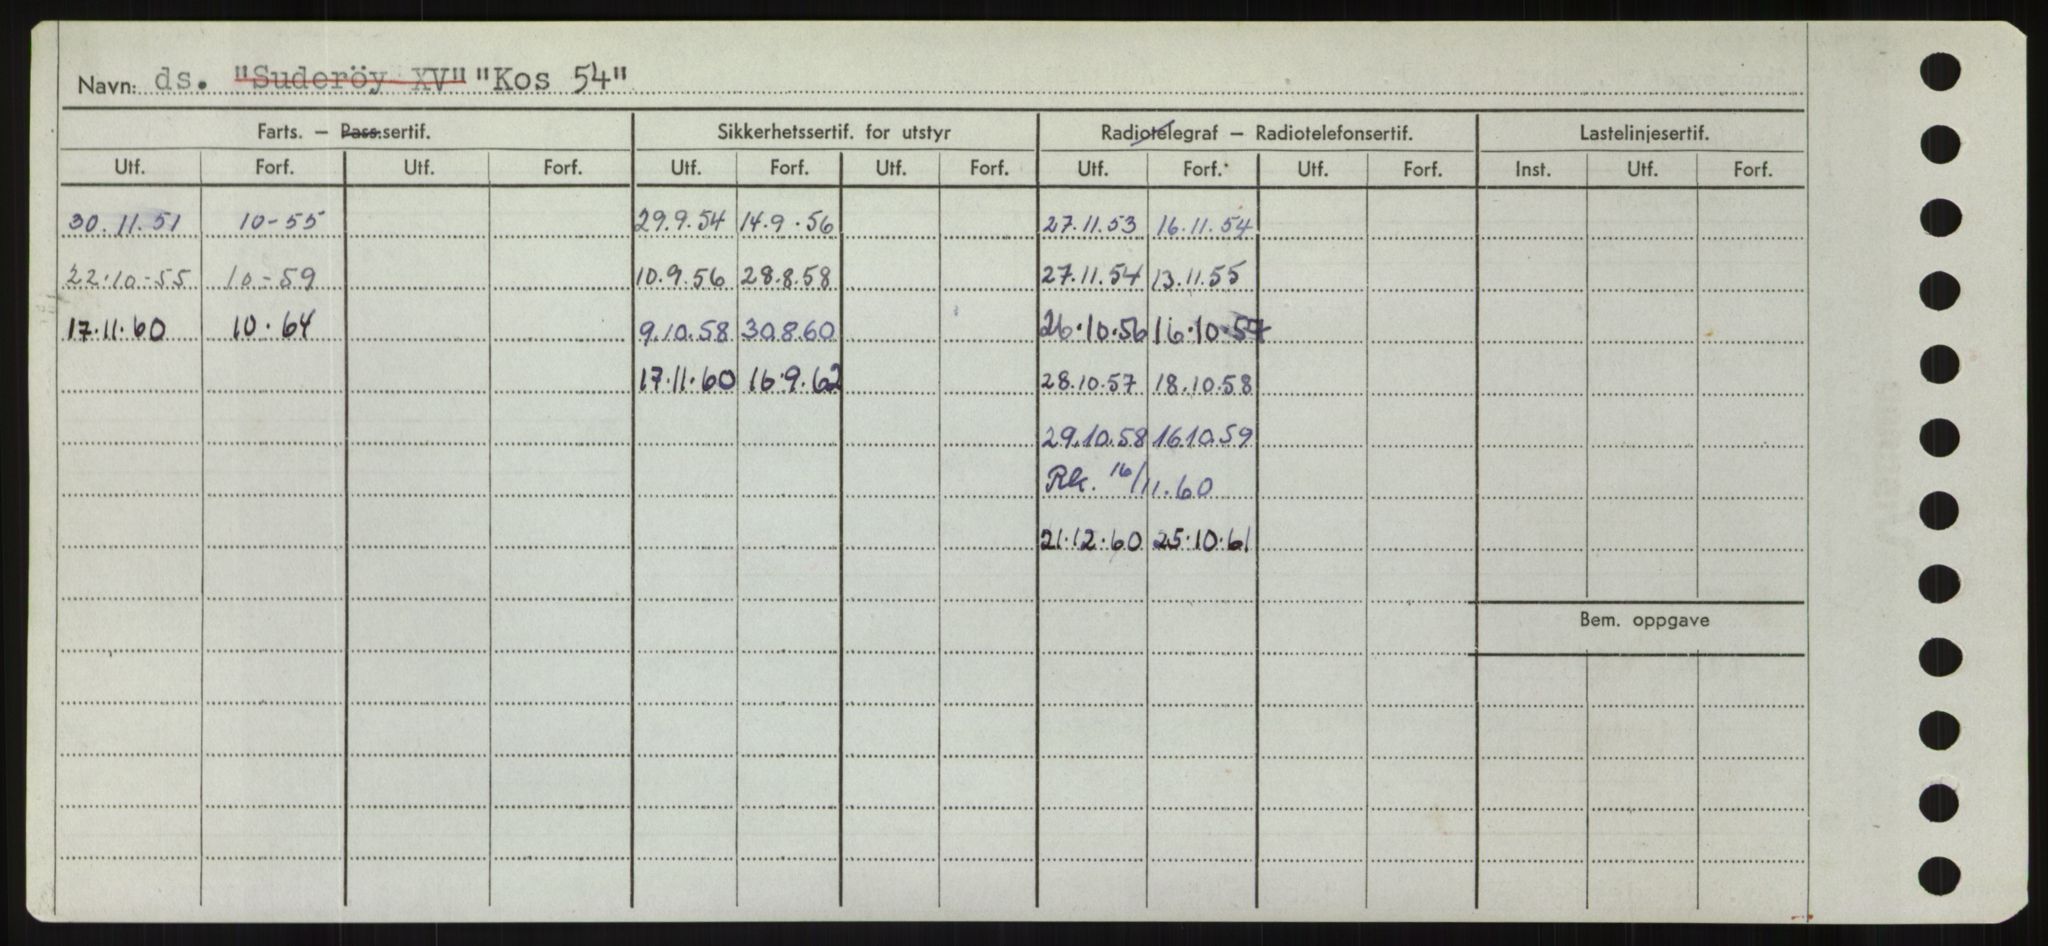 Navn: ds. "Suderöy XV" "Kos 54"
Farts. — Pass.sertif. Sikkerhetssertif. for utstyr Radiotelegraf — Radiotelefonsertif. Lastelinjesertif.
Utf. Forf. Utf. Forf. Utf. Forf. Utf. Forf. Utf. Forf. Utf. Forf. Inst. Utf. Forf.
30.11.51 10-55 29.9.54 14.9.56 27.11.53 16.11.54
22.10-55 10-59 10.9.56 28.8.58 27.11.54 13.11.55
17.11.60 10.64 9.10.58 30.8.60 26.10.56 16.10.57
17.11.60 16.9.62 28.10.57 18.10.58
29.10.58 16.10.59
Rk. 16/11.60
21.12.60 25.10.61
Bem. oppgave